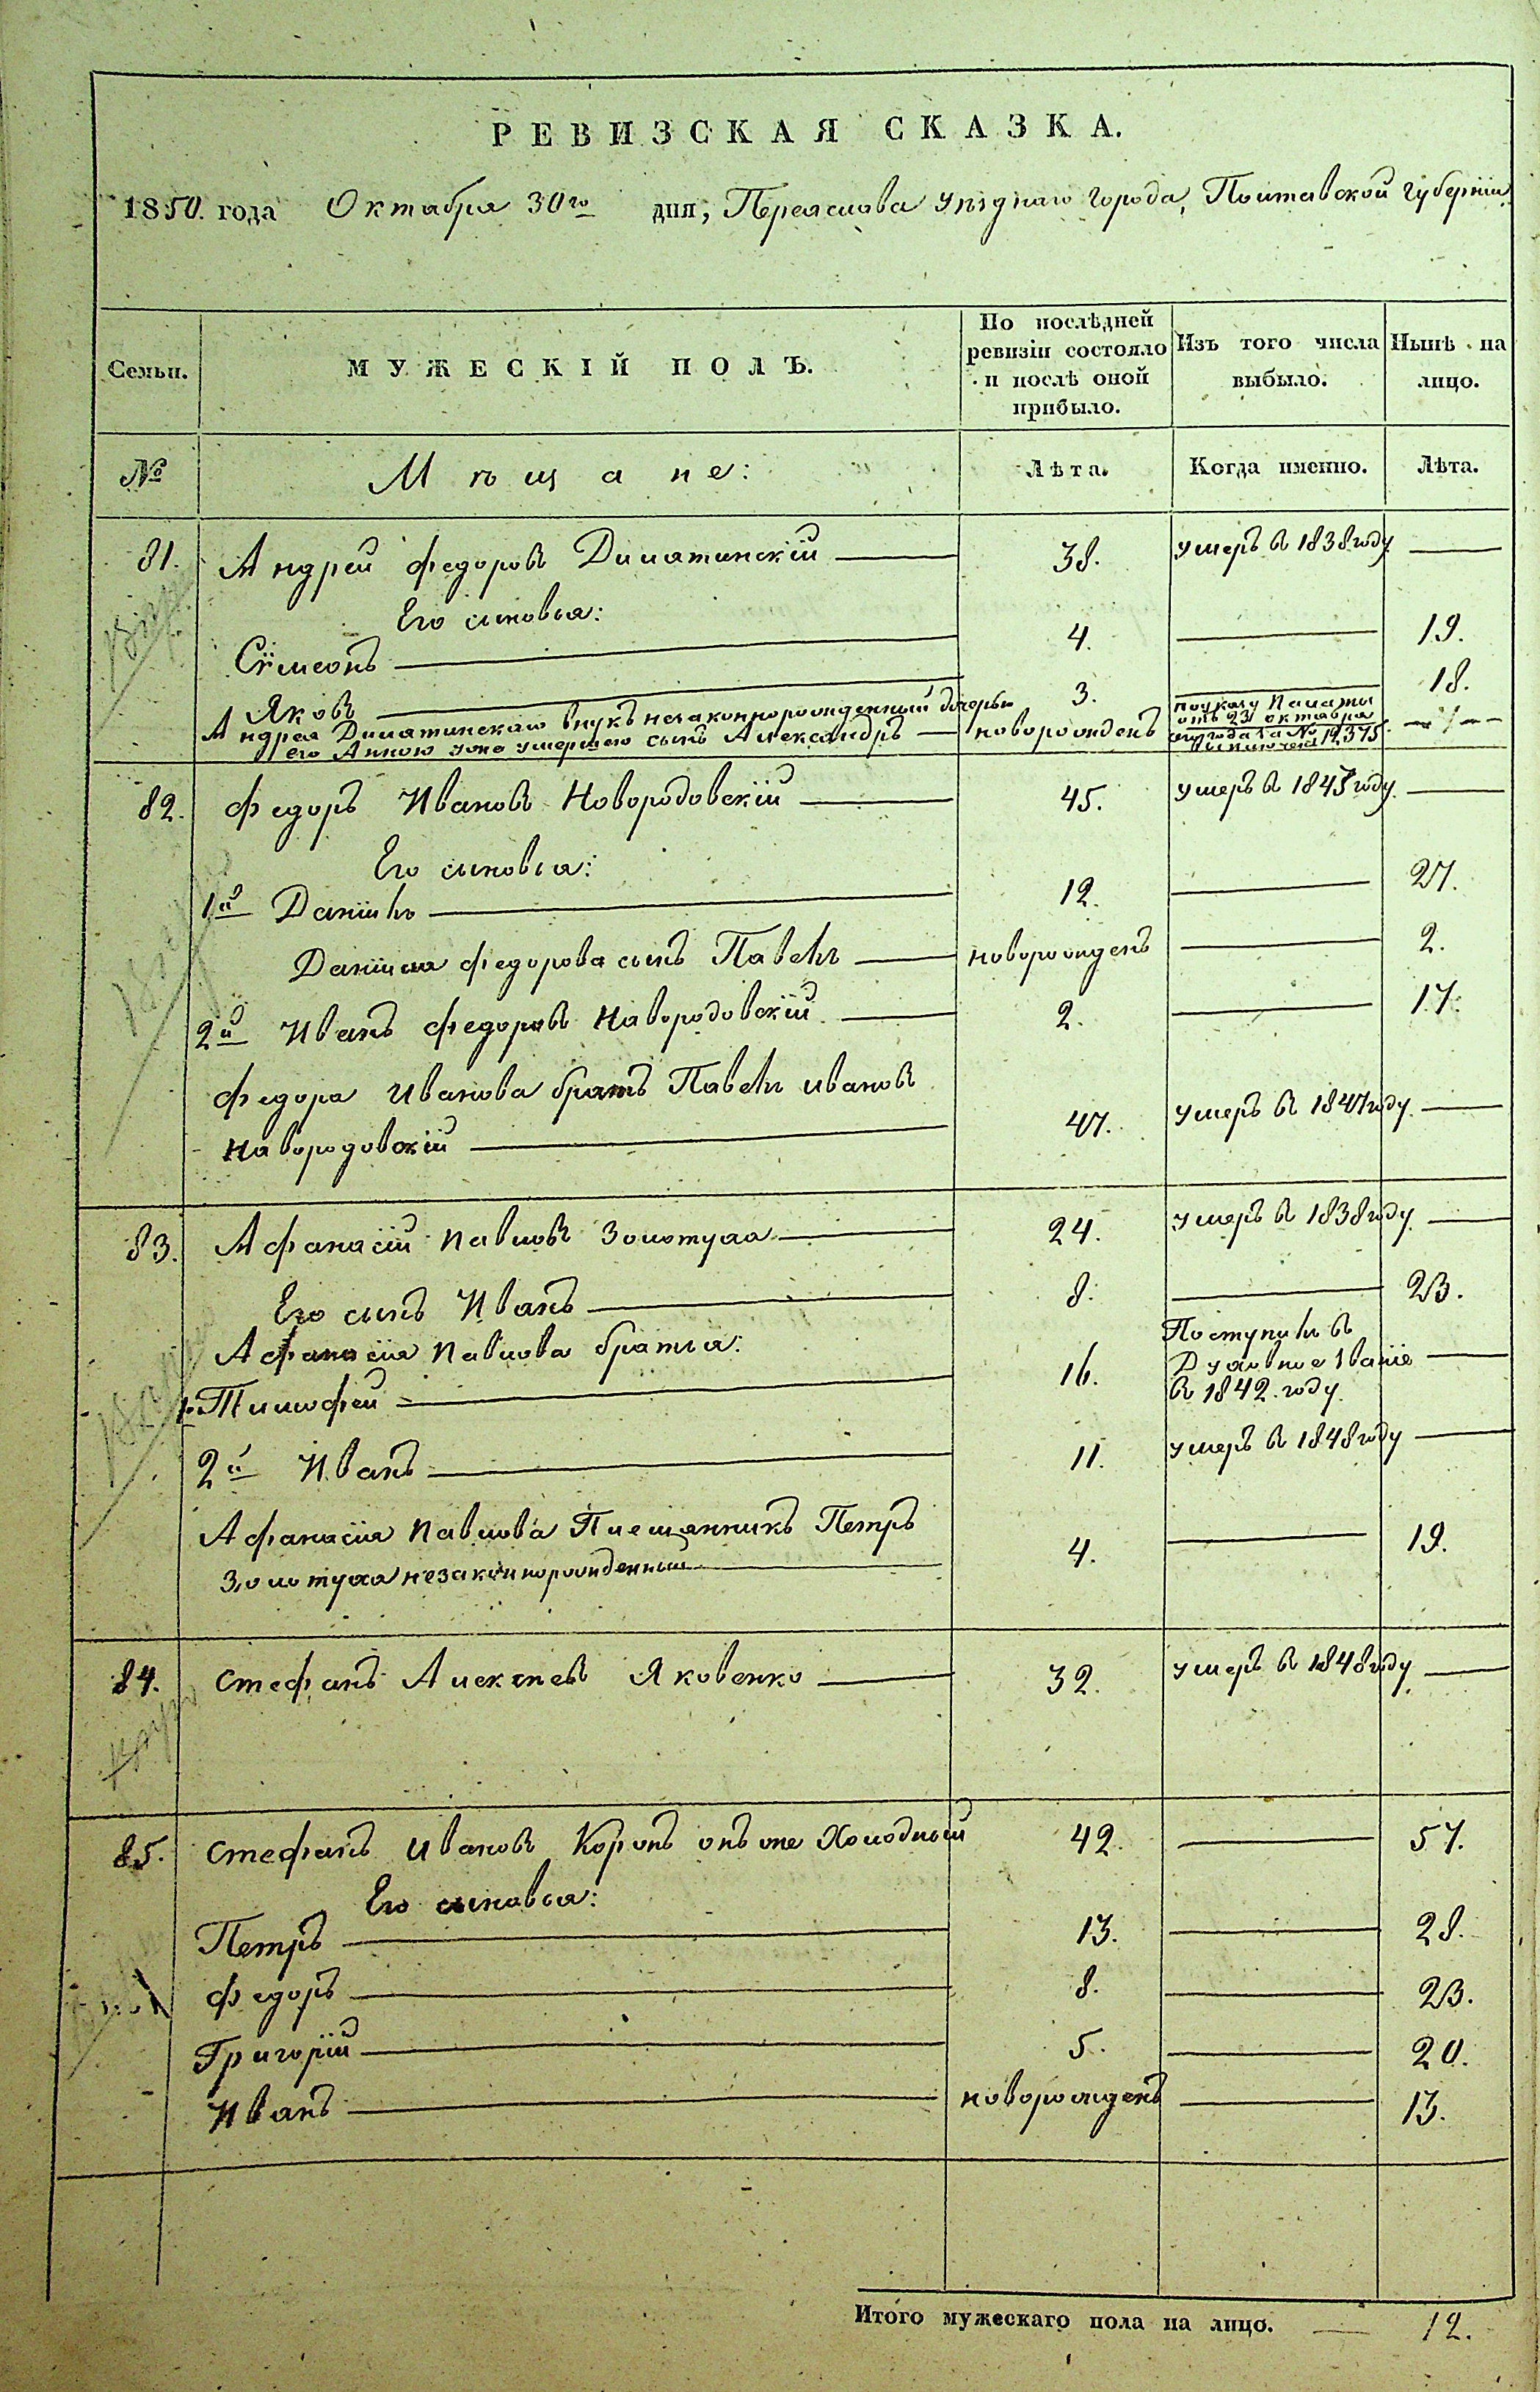 РЕВИЗСКАЯ СКАЗКА.
1850. года Октября 30го дня, Переяслова уѣзднаго города, Полтавской губерніи
Семьи. МУЖЕСКІЙ ПОЛЪ. По послѣдней ревизіи состояло и послѣ оной прибыло. Изъ того числа выбыло. Нынѣ на лицо.
№ Мѣщане: Лѣта. Когда именно. Лѣта.
81. Андрей Федоровъ Дилятинскій 38. умеръ в 1838 году
Его сыновья:
Сѵмеонъ 4. 19.
Яковъ 3. 18.
Андрея Дилятинскаго внукъ незаконнорожденный дочерью
его Анною уже умершею сынъ Александръ новорожденъ по указу Палаты
отъ 23 октября
сего года за № 12375
выключенъ
82. Федоръ Ивановъ Новородовскій 45. умеръ в 1847 году
Его сыновья:
1й Даніилъ 12. 27.
Даніила Федорова сынъ Павелъ новорожденъ 2.
2й Иванъ Федоровъ Навородовскій 2. 17.
Федора Иванова братъ Павелъ Ивановъ
Навородовскій 47. умеръ в 1847 году
83. Афанасій Павловъ Золотуха 24. умеръ в 1838 году
Его сынъ Иванъ 8. 23.
Афанасія Павлова братья:
1. Тимофей 16. Поступилъ в
Духовное званіе
в 1842. году
2й Иванъ 11. умеръ в 1848 году
Афанасія Павлова Племянникъ Петръ
Золотуха незаконнорожденный 4. 19.
84. Стефанъ Алексѣевъ Яковенко 32. умеръ в 1848 году
85. Стефанъ Ивановъ Коропъ онъ же Холодный 42. 57.
Его сыновья:
Петръ 13. 28.
Федоръ 8. 23.
Григорій 5. 20.
Иванъ новорожденъ 13.
Итого мужескаго пола на лицо. 12.